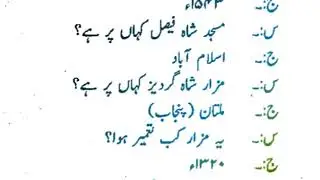 ج:۔ ۱۵۴۳ء
س:۔ مسجد شاہ فیصل کہاں پر ہے؟
ج:۔ اسلام آباد
س:۔ مزار شاہ گردیز کہاں پر ہے؟
ج:۔ ملتان (پنجاب)
س:۔ یہ مزار کب تعمیر ہوا؟
ج:۔ ۱۳۲۰ء